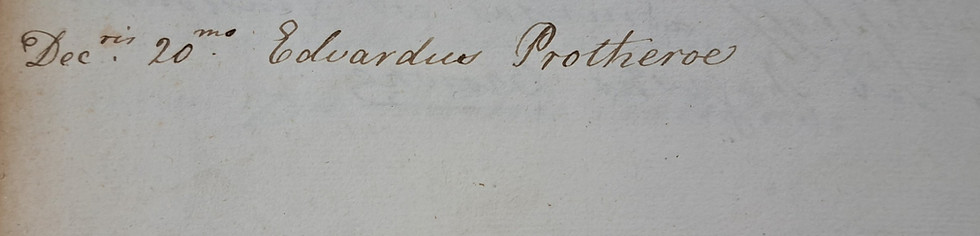 Dec.ris 20.mo Edvardus Protheroe